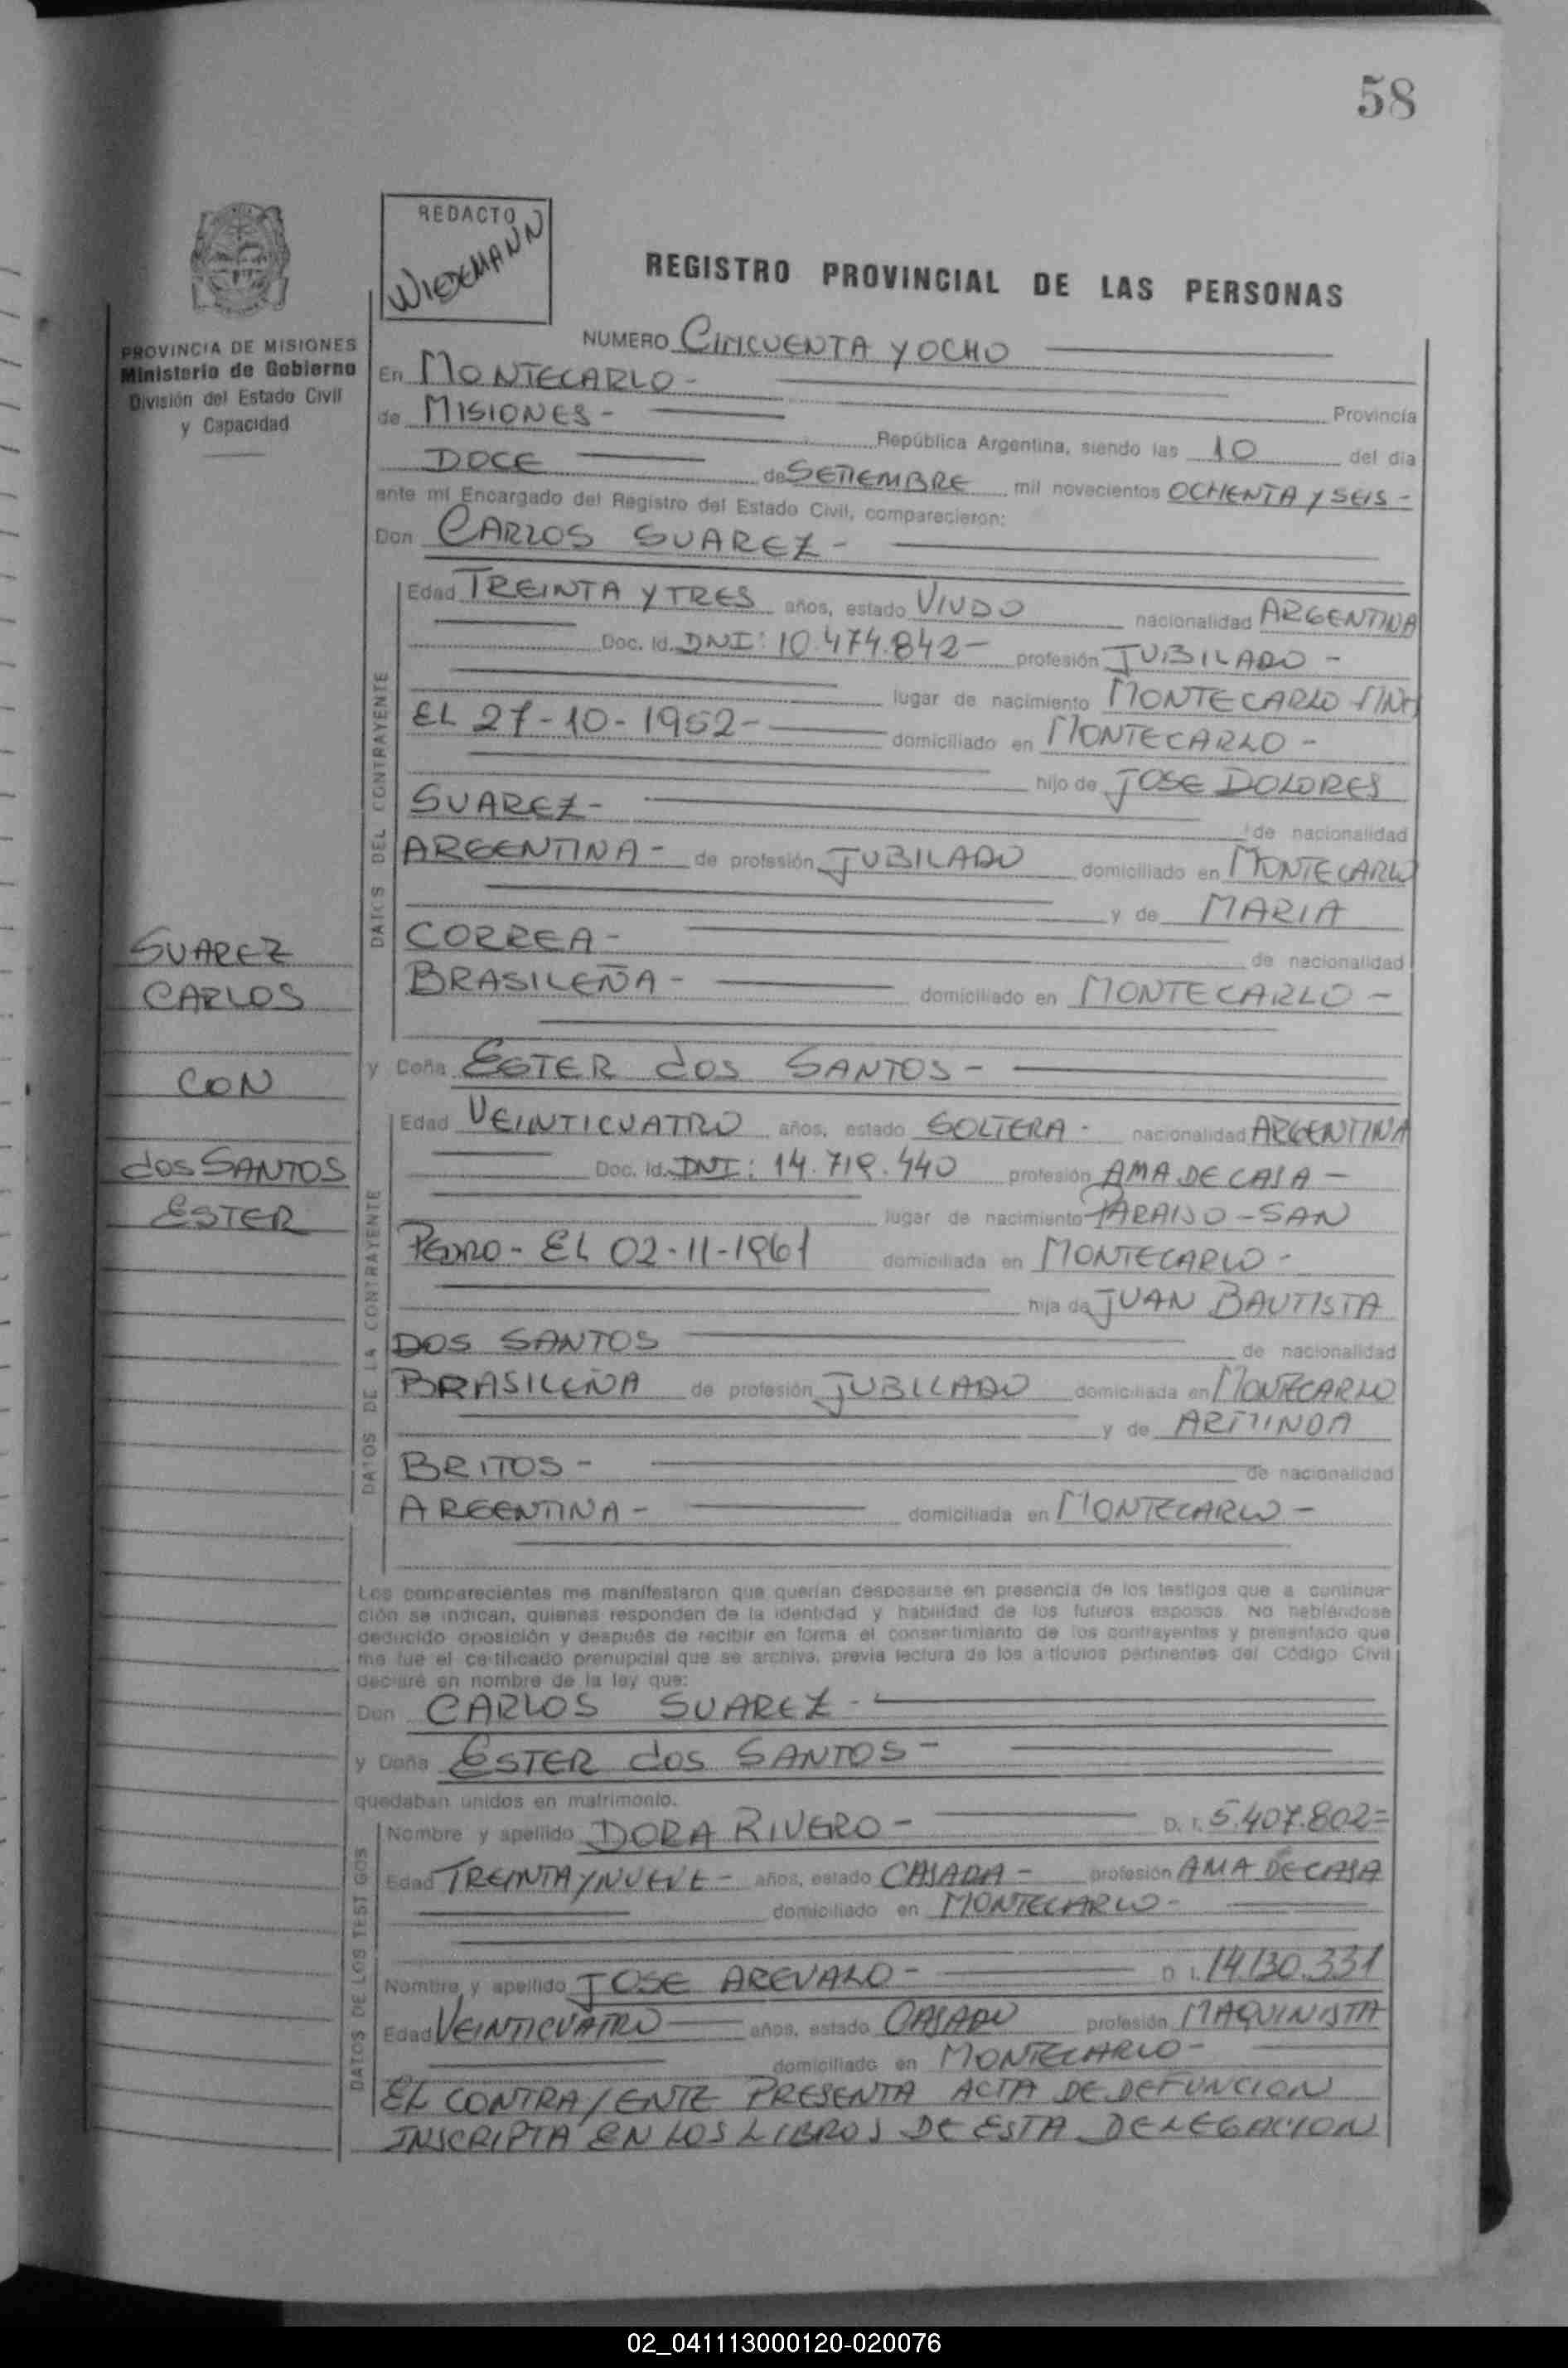 58
REDACTO
WIEDEMANN
REGISTRO PROVINCIAL DE LAS PERSONAS
PROVINCIA DE MISIONES
Ministerio de Gobierno
División del Estado Civil
y Capacidad
NUMERO CINCUENTA Y OCHO
En MONTECARLO -
Provincia
de MISIONES - República Argentina, siendo las 10 del día
DOCE de SETIEMBRE mil novecientos OCHENTA Y SEIS -
ante mí Encargado del Registro del Estado Civil, comparecieron:
Don CARLOS SUAREZ -
DATOS DEL CONTRAYENTE
Edad TREINTA Y TRES años, estado VIUDO nacionalidad ARGENTINA
Doc. Id. DNI: 10.474.842 - profesión JUBILADO -
lugar de nacimiento MONTECARLO
EL 27-10-1952 - domiciliado en MONTECARLO -
hijo de JOSE DOLORES
SUAREZ - de nacionalidad
ARGENTINA - de profesión JUBILADO domiciliado en MONTECARLO
y de MARIA
CORREA - de nacionalidad
BRASILEÑA - domiciliado en MONTECARLO -
SUAREZ
CARLOS
CON
dos SANTOS
ESTER
y Doña ESTER dos SANTOS -
DATOS DE LA CONTRAYENTE
Edad VEINTICUATRO años, estado SOLTERA - nacionalidad ARGENTINA
Doc. Id. DNI: 14.719.440 profesión AMA DE CASA -
lugar de nacimiento PARAISO - SAN
PEDRO - EL 02-11-1961 domiciliada en MONTECARLO -
hija de JUAN BAUTISTA
DOS SANTOS de nacionalidad
BRASILEÑA de profesión JUBILADO domiciliada en MONTECARLO
y de ARMINDA
BRITOS - de nacionalidad
ARGENTINA - domiciliada en MONTECARLO -
Los comparecientes me manifestaron que querían desposarse en presencia de los testigos que a continua-
ción se indican, quienes responden de la identidad y habilidad de los futuros esposos. No habiéndose
deducido oposición y después de recibir en forma el consentimiento de los contrayentes y presentado que
me fue el certificado prenupcial que se archiva, previa lectura de los artículos pertinentes del Código Civil
declaré en nombre de la ley que:
Don CARLOS SUAREZ -
y Doña ESTER dos SANTOS -
quedaban unidos en matrimonio.
DATOS DE LOS TESTIGOS
Nombre y apellido DORA RIVERO - D. I. 5.407.802 =
Edad TREINTA Y NUEVE - años, estado CASADA - profesión AMA DE CASA
domiciliado en MONTECARLO -
Nombre y apellido JOSE AREVALO - D. I. 14.130.331
Edad VEINTICUATRO años, estado CASADO profesión MAQUINISTA
domiciliado en MONTECARLO -
EL CONTRAYENTE PRESENTA ACTA DE DEFUNCION
INSCRIPTA EN LOS LIBROS DE ESTA DELEGACION
02_041113000120-020076